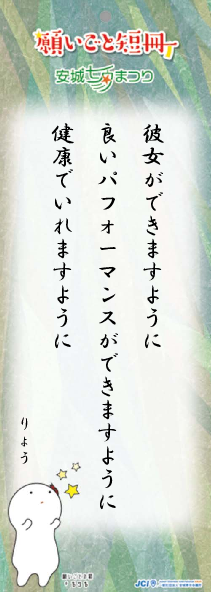 願いごと短冊
安城七夕まつり
彼女ができますように
良いパフォーマンスができますように
健康でいれますように
りょう
JCI